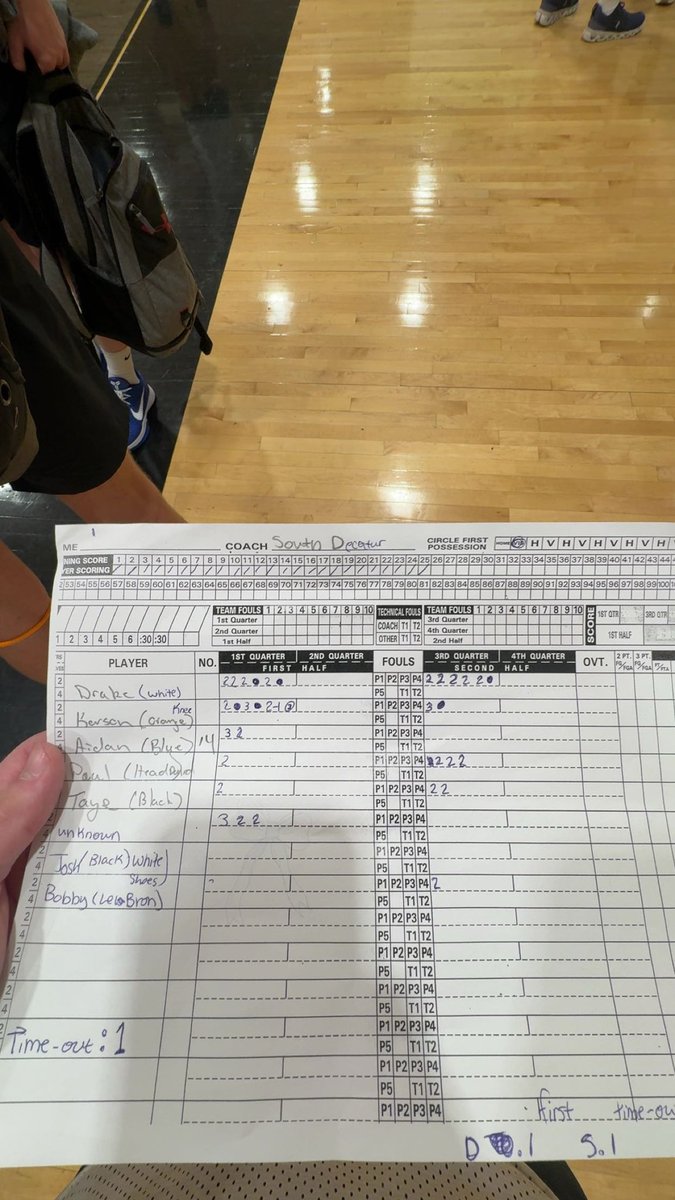 ME COACH South Decatur CIRCLE FIRST POSSESSION HOME VIS H V H V H V H V H
NING SCORE 1 2 3 4 5 6 7 8 9 10 11 12 13 14 15 16 17 18 19 20 21 22 23 24 25 26 27 28 29 30 31 32 33 34 35 36 37 38 39 40 41 42 43 44
YER SCORING
53 54 55 56 57 58 59 60 61 62 63 64 65 66 67 68 69 70 71 72 73 74 75 76 77 78 79 80 81 82 83 84 85 86 87 88 89 90 91 92 93 94 95 96 97 98 99 100
TEAM FOULS 1 2 3 4 5 6 7 8 9 10 TECHNICAL FOULS TEAM FOULS 1 2 3 4 5 6 7 8 9 10 SCORE 1ST QTR 3RD QTR
1st Quarter 3rd Quarter
2nd Quarter COACH T1 T2 4th Quarter
1 2 3 4 5 6 :30 :30 1st Half OTHER T1 T2 2nd Half 1ST HALF
PLAYER NO. 1ST QUARTER 2ND QUARTER FOULS 3RD QUARTER 4TH QUARTER OVT. 2 PT. 3 PT.
FIRST HALF SECOND HALF FG/FGA FG/FGA FT/FTA
2 222 2 P1 P2 P3 P4 22222
4 Drake (white) P5 T1 T2
2 Knee 2 3 2 1 P1 P2 P3 P4 3
4 Kerson (orange) P5 T1 T2
2 32 P1 P2 P3 P4
Aidan (Blue) 14 P5 T1 T2
2 P1 P2 P3 P4 222
Paul P5 T1 T2
2 P1 P2 P3 P4 22
Taye (Black) P5 T1 T2
2 322 P1 P2 P3 P4
unknown P5 T1 T2
P1 P2 P3 P4
4 Josh (Black) White P5 T1 T2
2 Shoes P1 P2 P3 P4 2
4 Bobby P5 T1 T2
2 P1 P2 P3 P4
4 P5 T1 T2
2 P1 P2 P3 P4
4 P5 T1 T2
2 P1 P2 P3 P4
4 P5 T1 T2
2 P1 P2 P3 P4
Time-out: 1 P5 T1 T2
P1 P2 P3 P4
P5 T1 T2
P1 P2 P3 P4 first time-ou
D .1 S.1